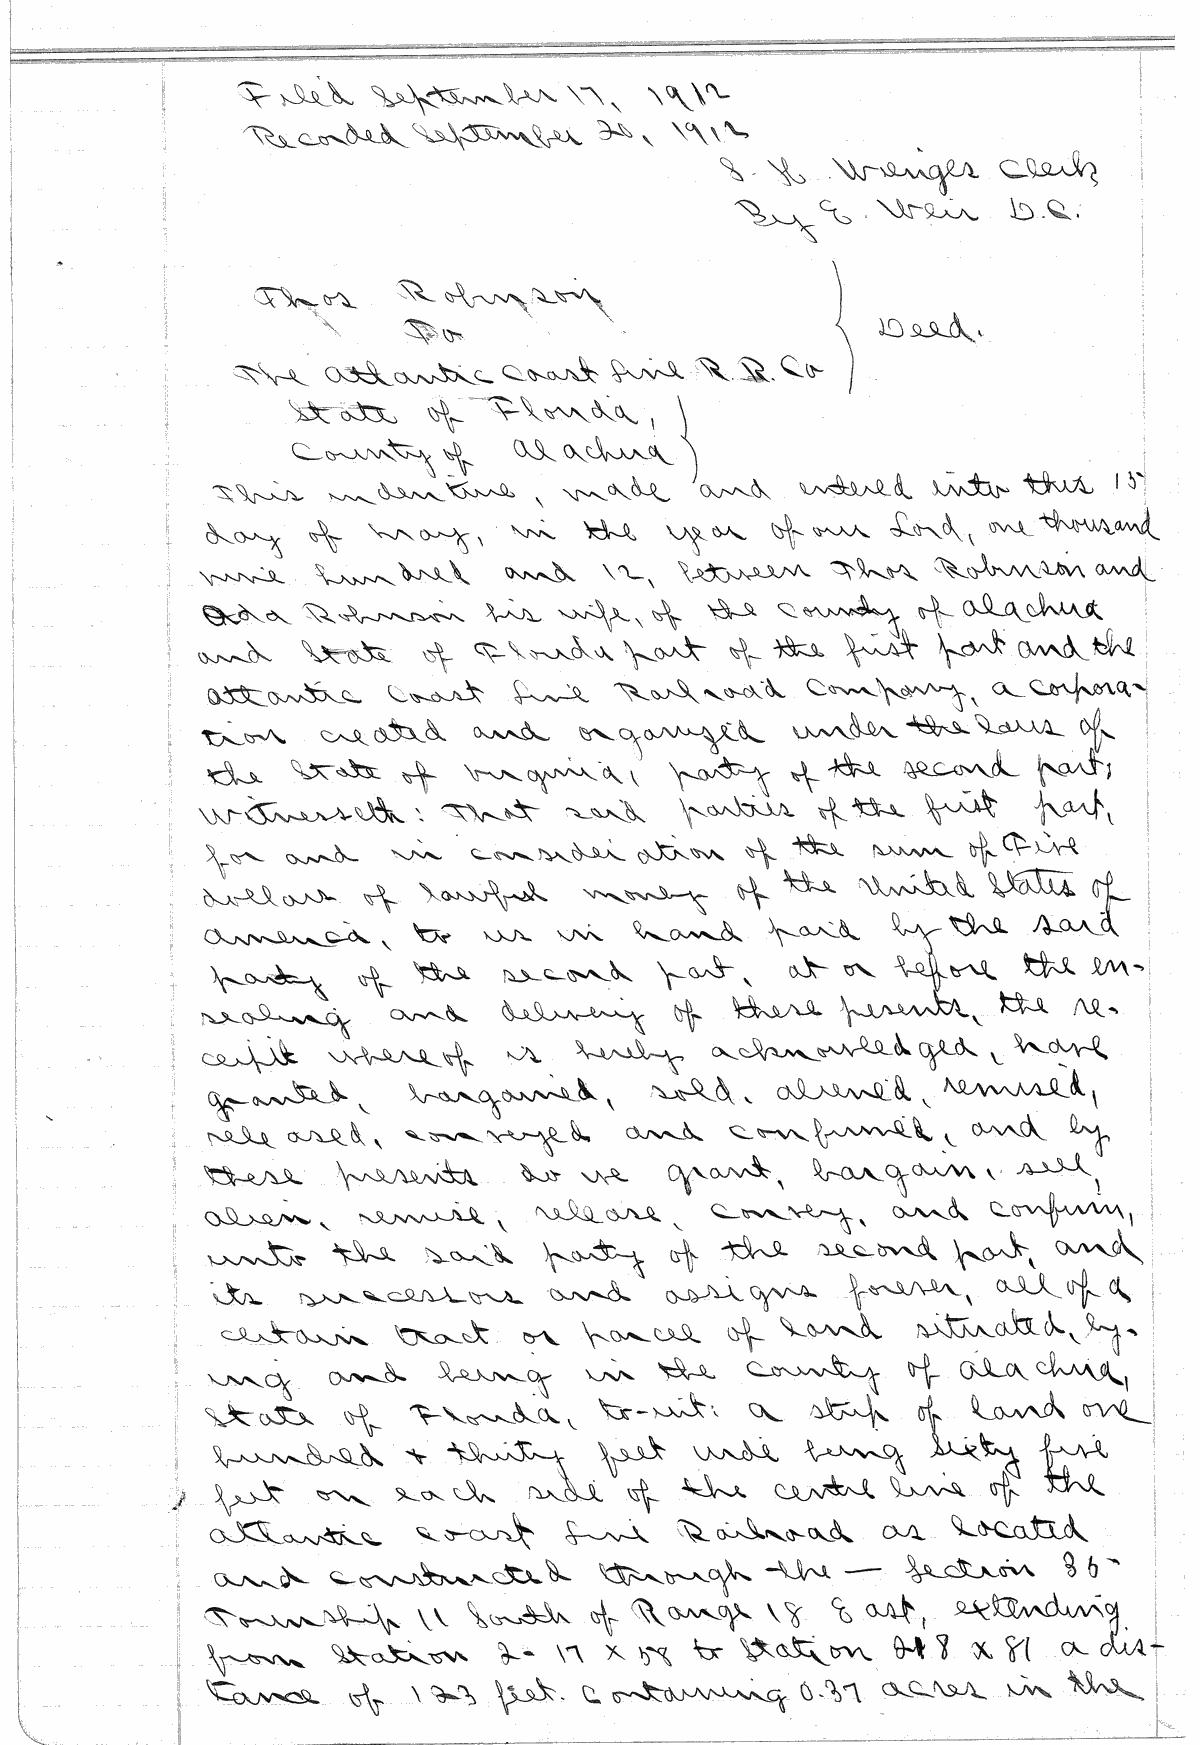 Filed September 17, 1912
Recorded September 20, 1912
S. H. Wienges Clerk
By E. Weir D.C.
Thos Robinson
To
The Atlantic Coast Line R.R. Co
Deed.
State of Florida,
County of Alachua
This indenture, made and entered into this 15
day of May, in the year of our Lord, one thousand
nine hundred and 12, between Thos Robinson and
Ada Robinson his wife, of the County of Alachua
and State of Florida part of the first part and the
Atlantic Coast Line Railroad Company, a corpora-
tion created and organized under the laws of
the State of Virginia, party of the second part;
Witnesseth: That said parties of the first part,
for and in consideration of the sum of Five
dollars of lawful money of the United States of
America, to us in hand paid by the said
party of the second part, at or before the en-
sealing and delivery of these presents, the re-
ceipt whereof is hereby acknowledged, have
granted, bargained, sold, aliened, remised,
released, conveyed and confirmed, and by
these presents do we grant, bargain, sell,
alien, remise, release, convey, and confirm,
unto the said party of the second part, and
its successors and assigns forever, all of a
certain tract or parcel of land situated, ly-
ing and being in the County of Alachua,
State of Florida, to-wit: a strip of land one
hundred & thirty feet wide being sixty five
feet on each side of the centre line of the
Atlantic Coast Line Railroad as located
and constructed through the — Section 36
Township 11 South of Range 18 East, extending
from Station 2- 17 x 58 to Station 218 x 81 a dis-
tance of 123 feet. Containing 0.37 acres in the